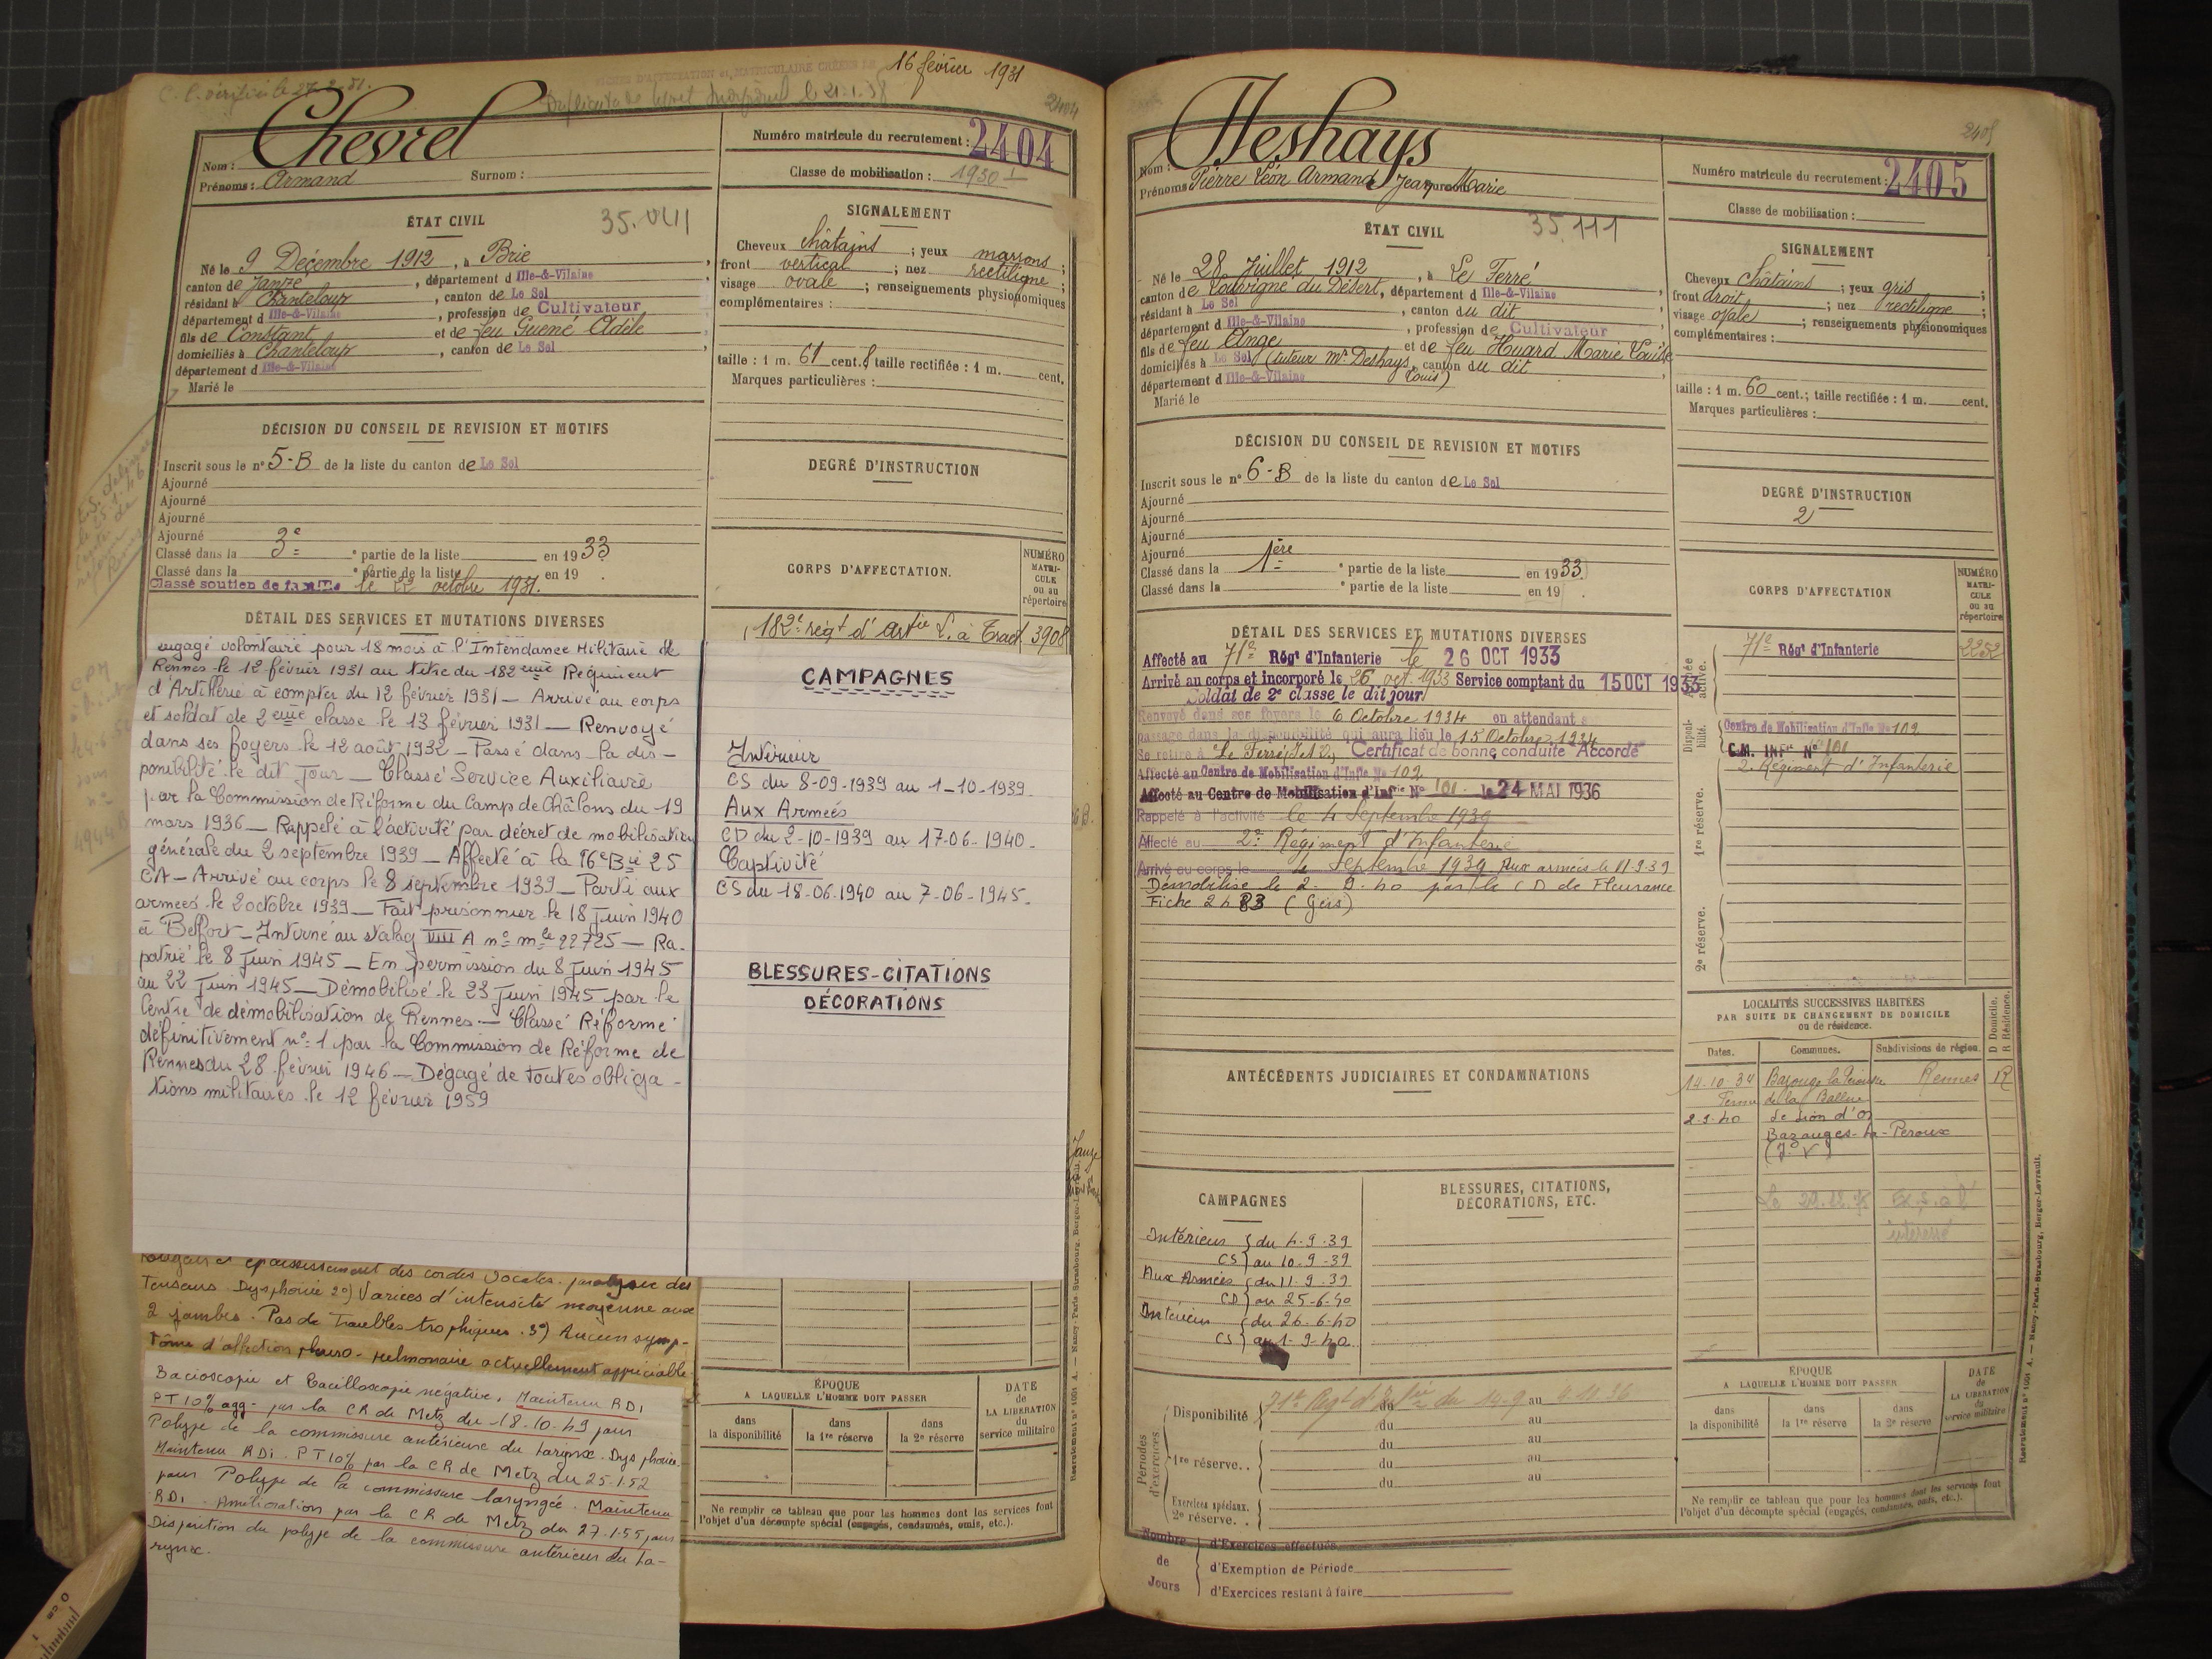 16 février 1931
Duplicata de livret individuel le 21.1.38
2404
Chevrel
Nom :
Prénoms : Armand Surnom :
Numéro matricule du recrutement : 2404
Classe de mobilisation : 1930
ÉTAT CIVIL
Né le 9 Décembre 1912, à Brie,
canton de Janzé, département d Ille-&-Vilaine
résidant à Chanteloup, canton de Le Sel
département d Ille-&-Vilaine, profession de Cultivateur
fils de Constant et de feu Guemé Adèle
domiciliés à Chanteloup, canton de Le Sel
département d Ille-&-Vilaine
Marié le
SIGNALEMENT
Cheveux châtains ; yeux marrons ;
front vertical ; nez rectiligne ;
visage ovale ; renseignements physionomiques
complémentaires :
taille : 1 m. 61 cent. ; taille rectifiée : 1 m. cent.
Marques particulières :
DÉCISION DU CONSEIL DE REVISION ET MOTIFS
Inscrit sous le n° 5-B de la liste du canton de Le Sel
Ajourné
Ajourné
Ajourné
Ajourné
Classé dans la 3e ᵉ partie de la liste en 1933
Classé dans la ᵉ partie de la liste en 19 .
Classé soutien de famille le 22 octobre 1931.
DEGRÉ D'INSTRUCTION
CORPS D'AFFECTATION.
NUMÉRO MATRI-CULE ou au répertoire
182e régt d'Artie L. à Tract. 3908
DÉTAIL DES SERVICES ET MUTATIONS DIVERSES
engagé volontaire pour 18 mois à l'Intendance Militaire de
Rennes le 12 février 1931 au titre du 182eme Régiment
d'Artillerie à compter du 12 février 1931 — Arrivé au corps
et soldat de 2eme classe le 13 février 1931 — Renvoyé
dans ses foyers le 12 août 1932 — Passé dans la dis-
ponibilité le dit jour — Classé Service Auxiliaire
par la Commission de Réforme du Camp de Châlons du 19
mars 1936 — Rappelé à l'activité par décret de mobilisation
générale du 2 septembre 1939 — Affecté à la 16e Bie 25
CA — Arrivé au corps le 8 septembre 1939 — Parti aux
armées le 2 octobre 1939 — Fait prisonnier le 18 Juin 1940
à Belfort — Interné au stalag VIII A n° mle 22725 — Ra-
patrié le 8 Juin 1945 — En permission du 8 Juin 1945
au 22 Juin 1945 — Démobilisé le 23 Juin 1945 par le
Centre de démobilisation de Rennes — Classé Réformé
définitivement n° 1 par la Commission de Réforme de
Rennes du 28 février 1946 — Dégagé de toutes obliga-
tions militaires le 12 février 1959
CAMPAGNES
Intérieur
CS du 8-09-1939 au 1-10-1939
Aux Armées
CD du 2-10-1939 au 17-06-1940-
Captivité
CS du 18-06-1940 au 7-06-1945-
BLESSURES-CITATIONS
DÉCORATIONS
Rougeur et épaississement des cordes vocales. paralysie des
tenseurs. Dysphonie 2°) Varices d'intensité moyenne aux
2 jambes. Pas de troubles trophiques. 3°) Aucun symp-
tôme d'affection pleuro-pulmonaire actuellement appréciable
Bacioscopie et Bacilloscopie négative, Maintenu RDI
PT 10% agg- par la CR de Metz du 18.10.49 pour
Polype de la commissure antérieure du larynx. Dysphonie-
Maintenu RDI. PT 10% par la CR de Metz du 25.1.52
pour Polype de la commissure laryngée. Maintenu
RDI - Amélioration par la CR de Metz du 27.1.55 pour
Disparition du polype de la commissure antérieur du la-
rynx.
ÉPOQUE
A LAQUELLE L'HOMME DOIT PASSER
dans la disponibilité
dans la 1re réserve
dans la 2e réserve
DATE de LA LIBERATION du service militaire
Ne remplir ce tableau que pour les hommes dont les services font
l'objet d'un décompte spécial (engagés, condamnés, omis, etc.).
2405
Deshays
Nom :
Prénoms Pierre Léon Armand Jean Marie
Numéro matricule du recrutement : 2405
Classe de mobilisation :
ÉTAT CIVIL 35.111
Né le 28 Juillet 1912, à Le Ferré
canton de Louvigné du Désert, département d Ille-&-Vilaine
résidant à Le Sel, canton du dit
département d Ille-&-Vilaine, profession de Cultivateur
fils de feu Ange et de feu Huard Marie Louise
domiciliés à Le Sel (tuteur Mr Deshays Louis), canton du dit
département d Ille-&-Vilaine
Marié le
SIGNALEMENT
Cheveux châtains ; yeux gris ;
front droit ; nez rectiligne ;
visage ovale ; renseignements physionomiques
complémentaires :
taille : 1 m. 60 cent. ; taille rectifiée : 1 m. cent.
Marques particulières :
DÉCISION DU CONSEIL DE REVISION ET MOTIFS
Inscrit sous le n° 6-B de la liste du canton de Le Sel
Ajourné
Ajourné
Ajourné
Ajourné
Classé dans la 1ère ᵉ partie de la liste en 1933.
Classé dans la ᵉ partie de la liste en 19 .
DEGRÉ D'INSTRUCTION
2
CORPS D'AFFECTATION
NUMÉRO MATRI-CULE ou au répertoire
Armée active.
71e Régt d'Infanterie 2252
Disponibilité.
Centre de Mobilisation d'Infie No 102
C.M. INFie No 101
2e Régiment d'Infanterie
1re réserve.
2e réserve.
DÉTAIL DES SERVICES ET MUTATIONS DIVERSES
Affecté au 71e Régt d'Infanterie le 26 OCT 1933
Arrivé au corps et incorporé le 26 oct. 1933 Service comptant du 15 OCT 1933
Soldat de 2e classe le dit jour
Renvoyé dans ses foyers le 6 Octobre 1934 en attendant s
passage dans la disponibilité qui aura lieu le 15 Octobre 1934
Se retire à Le Ferré (I et V) Certificat de bonne conduite "Accordé"
Affecté au Centre de Mobilisation d'Infie No 102
Affecté au Centre de Mobilisation d'Infie No 101 le 24 MAI 1936
Rappelé à l'activité le 4 Septembre 1939
Affecté au 2e Régiment d'Infanterie
Arrivé au corps le 4 Septembre 1939 Aux armées le 11-9-39
Démobilisé le 2. 9. 40 par le CD de Fleurance
Fiche 2483 (Gers)
LOCALITÉS SUCCESSIVES HABITÉES
PAR SUITE DE CHANGEMENT DE DOMICILE
ou de résidence.
Dates. Communes. Subdivisions de région. D Domicile. R Résidence.
14-10-34 Bazouges la Pérouse Rennes R
Ferme de la Ballue
2-9-40 Le Lion d'Or
Bazouges-la-Perouse
(I & V)
ANTÉCÉDENTS JUDICIAIRES ET CONDAMNATIONS
CAMPAGNES
Intérieur { du 4-9-39
CS } au 10-9-39
Aux Armées { du 11-9-39
CD } au 25-6-40
Intérieur { du 26-6-40
CS } au 1-9-40
BLESSURES, CITATIONS,
DÉCORATIONS, ETC.
Périodes d'exercices
Disponibilité 71e Régt d'Infie du 14.9 au
du au
1re réserve. . du au
du au
du au
Exercices spéciaux.
2e réserve. .
Nombre de Jours
d'Exercices effectués
d'Exemption de Période
d'Exercices restant à faire
ÉPOQUE
A LAQUELLE L'HOMME DOIT PASSER
dans la disponibilité
dans la 1re réserve
dans la 2e réserve
DATE de LA LIBERATION du service militaire
Ne remplir ce tableau que pour les hommes dont les services font
l'objet d'un décompte spécial (engagés, condamnés, omis, etc.).